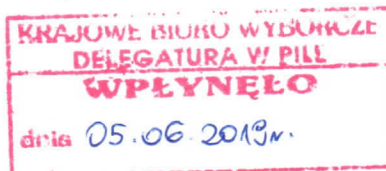 KRAJOWE BIURO WYBORCZE
DELEGATURA W PILE
WPŁYNĘŁO
dnia 05.06.2019r.